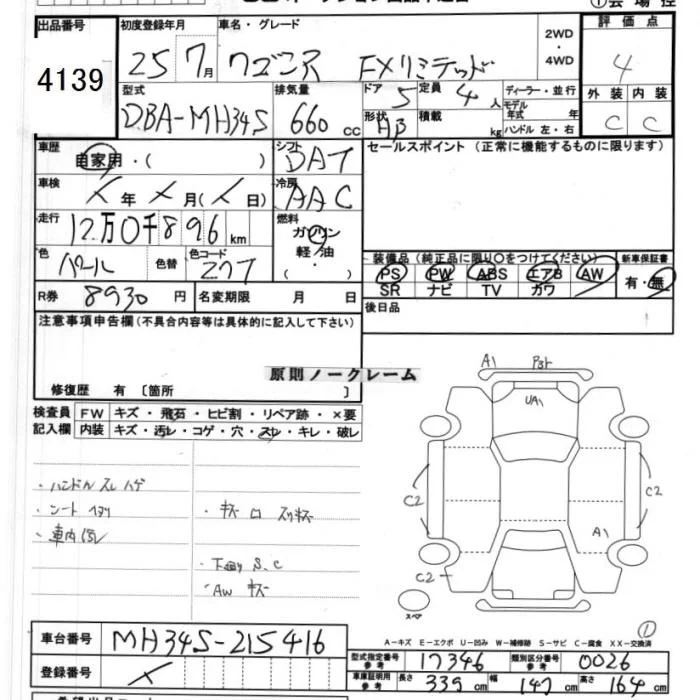 ① 会場控
出品番号 初度登録年月 車名・グレード 2WD ・ 4WD 評価点
4139 25 7月 ワゴンR FXリミテッド 4
型式 排気量 ドア 定員 ディーラー・並行 外装 内装
DBA-MH34S 660 cc 5 4人 モデル年式 年 C C
形状 HB 積載 kg ハンドル 左・右
車歴 自家用・( ) シフト DAT セールスポイント(正常に機能するものに限ります)
車検 年 月( 日) 冷房 AAC
走行 12万0千896km 燃料 ガソリン 軽油 ・ ( )
色 パール 色替 色コード Z7T 装備品(純正品に限り〇をつけてください) 新車保証書
PS PW ABS エアB AW 有・無
R券 8930円 名変期限 月 日 SR ナビ TV カワ
後日品
注意事項申告欄(不具合内容等は具体的に記入して下さい)
原則ノークレーム
修復歴 有 〔箇所 〕
検査員 FW キズ・飛石・ヒビ割・リペア跡・×要
記入欄 内装 キズ・汚レ・コゲ・穴・スレ・キレ・破レ
A1
UA1
・ハンドル スレ ハゲ
・シート
・車内汚レ
・キズ
下廻り S、C
AW キズ
C2
C2
A1
C2
スペア
①
A-キズ E-エクボ U-凹み W-補修跡 S-サビ C-腐食 XX-交換済
車台番号 MH34S-215416
型式指定番号 参考 17346 類別区分番号 参考 0026
登録番号
車庫証明用 参考 長さ 339cm 幅 147cm 高さ 164cm